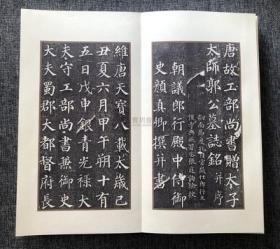 唐故工部尚書贈太子
大師郭公墓誌銘 并序
朝議郎行殿中侍御
史顏真卿撰并書
維唐天寶八載太歲己
丑夏六月甲午朔十有
五日戊申銀青光祿大
夫守工部尚書兼御史
大夫蜀郡大都督府長